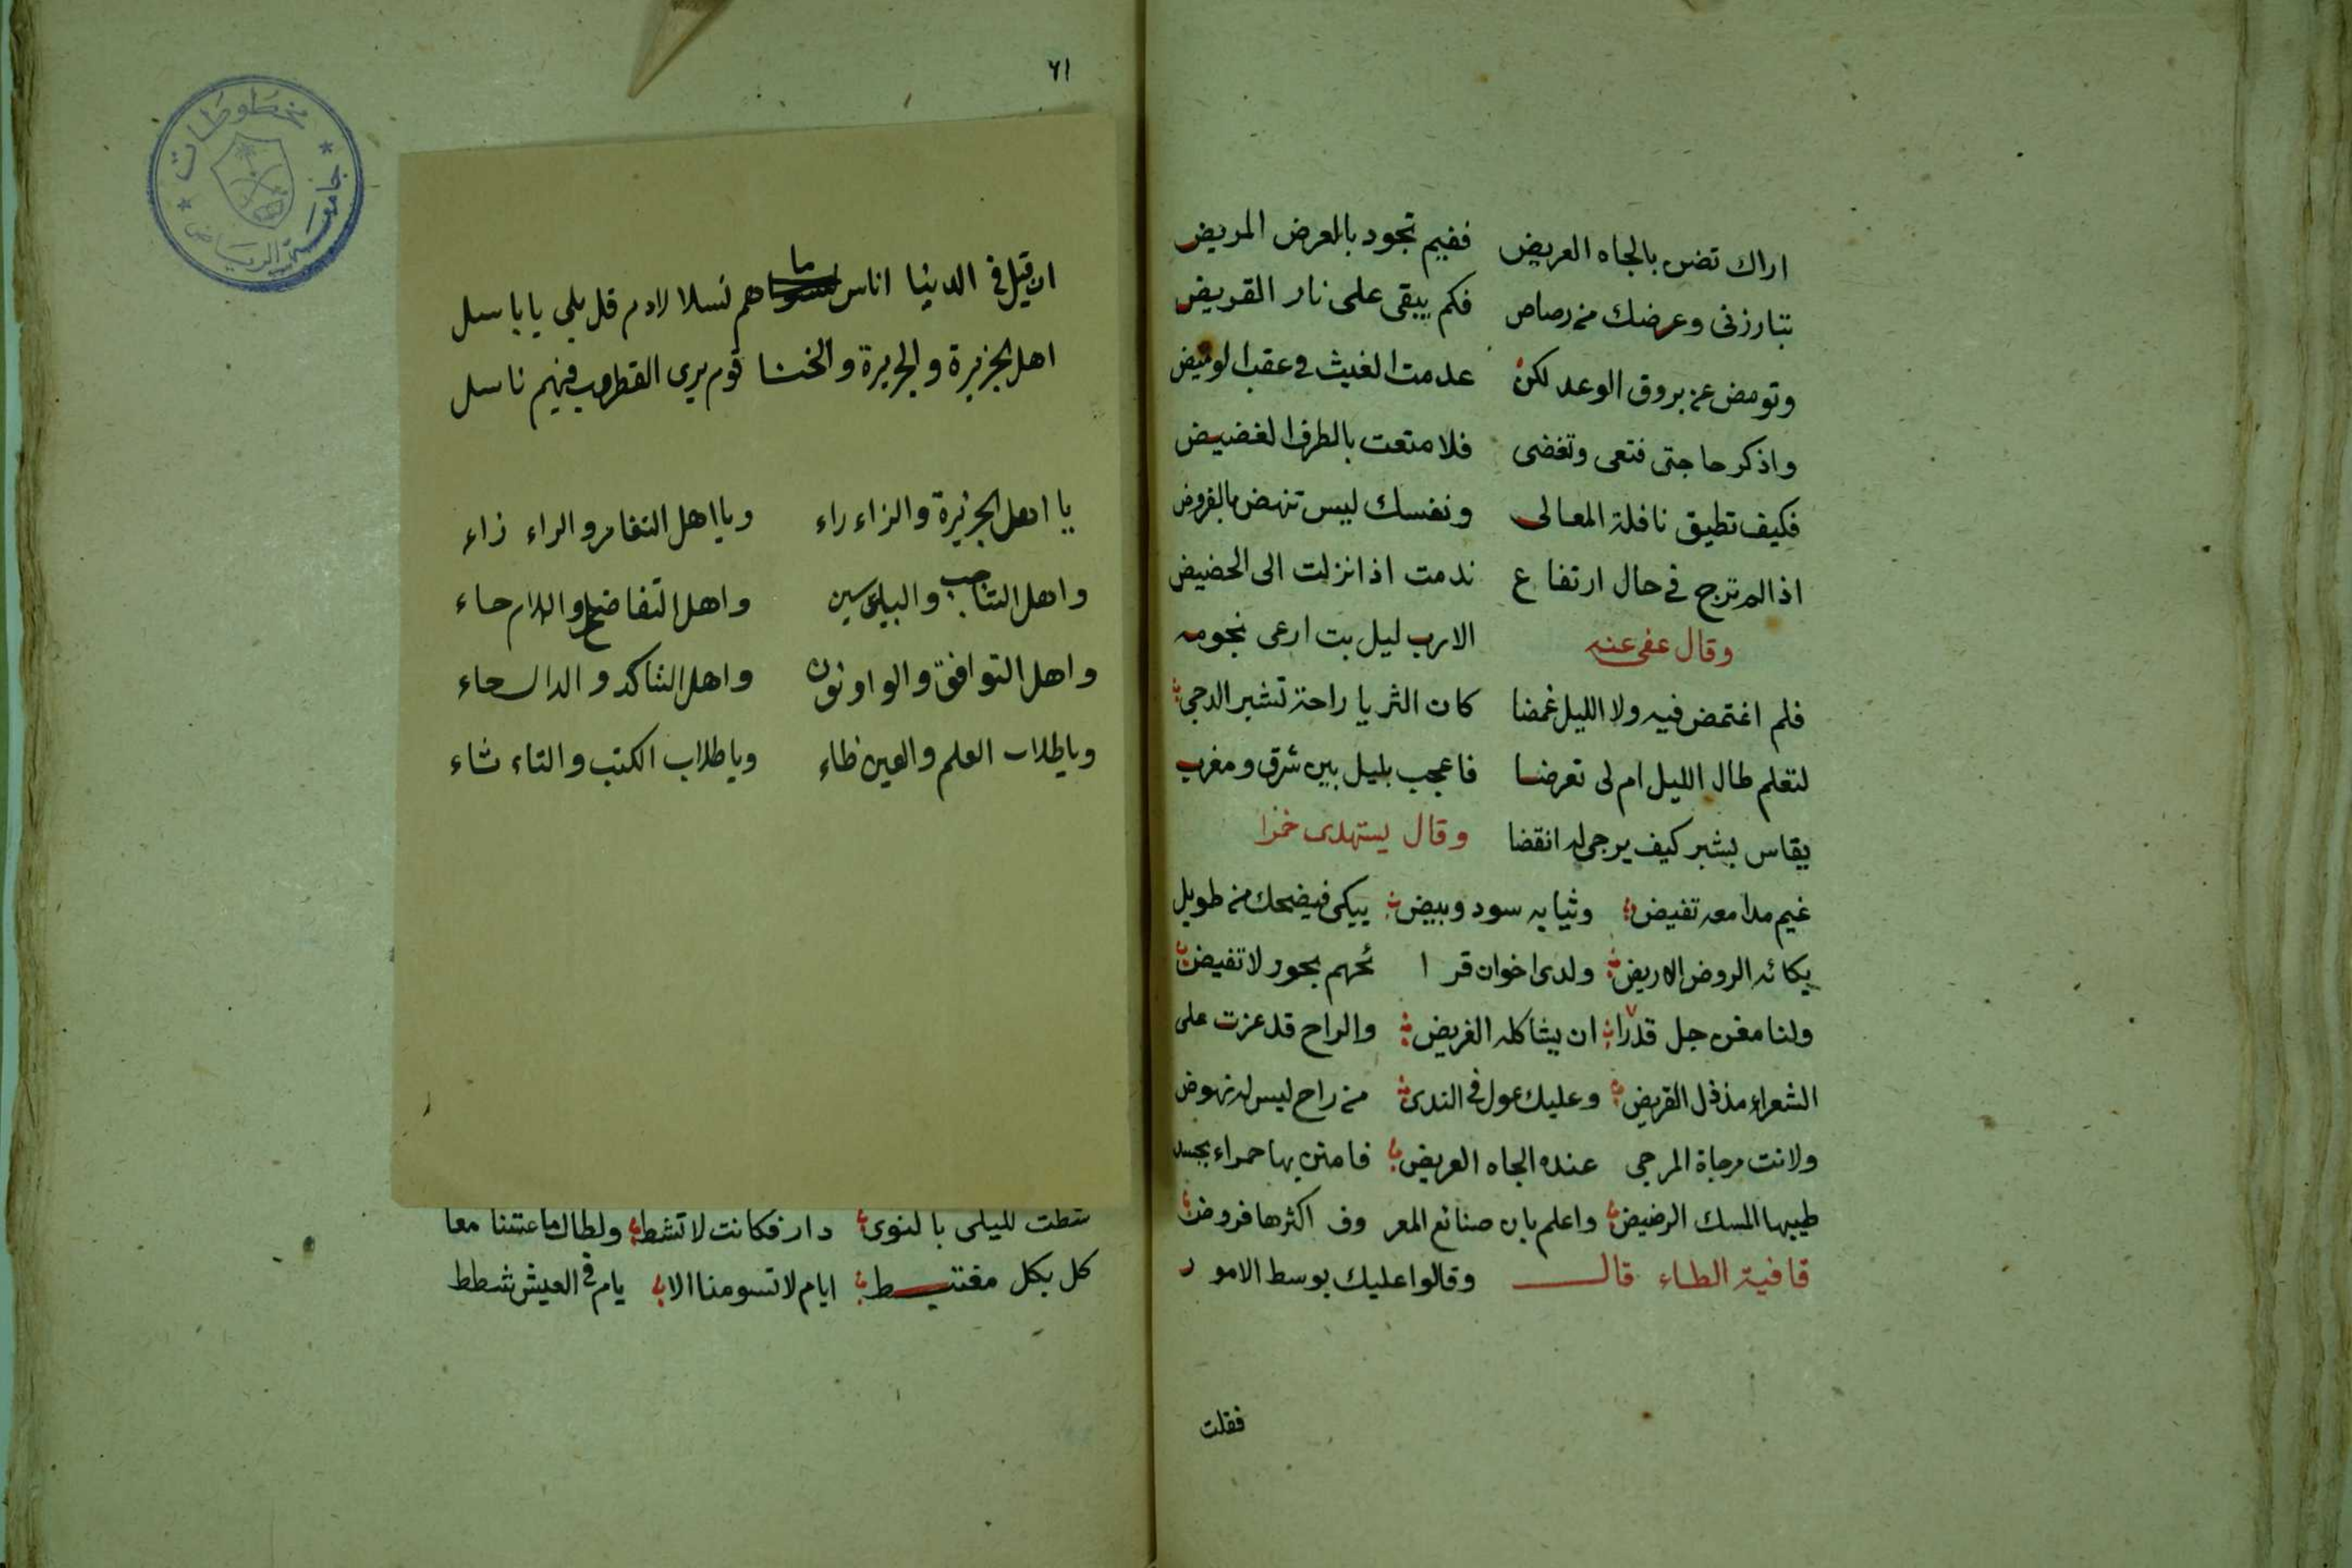 اراك تضن بالجاه العريض ففيم تجود بالعرض المريض
تبارزنى وعرضك من رصاص فكم يبقى على نار القريض
وتومض عن بروق الوعد لكن عدمت الغيث فى عقب الوميض
واذكر حاجتى فتعى وتغضى فلا متعت بالطرف الغضيض
فكيف تطيق نافلة المعالى ونفسك ليس تنهض بالفروض
اذا لم ترج فى حال ارتفاع ندمت اذا نزلت الى الحضيض
وقال عفى عنه الارب ليل بت ارعى نجومه
فلم اغتمض فيه ولا الليل غمضا كان الثريا راحة تشبر الدجى
لتعلم طال الليل ام لى تعرضا فاعجب بليل بين شرق ومغرب
يقاس بشبر كيف يرجى له انقضا وقال يستهدى خمرا
غيم مدامعه تفيض وثيابه سود وبيض يبكى فيضحك من طويل
بكائه الروض الاريض ولدى اخوان قرا ئحهم بحور لا تفيض
ولنا مغن جل قدرا ان يشاكله الغريض والراح قد عزت على
الشعراء مذ ذل القريض وعليك عول فى الندى من راح ليس له نهوض
ولانت مرجاة المرجى عنده الجاه العريض فامنن بها حمراء يحسد
طيبها المسك الرضيض واعلم بان صنائع المعر وف اكثرها فروض
قافية الطاء قال وقالوا عليك بوسط الامور
فقلت
٦١
ان قيل فى الدنيا اناس ما هم نسلا لادم قل بلى يا باسل
اهل الجزيرة والجريرة والخنا قوم يرى القطرب فيهم ناسل
يا اهل الجزيرة والزاء راء ويا اهل التفامر والراء زاء
واهل التناجب والباء سين واهل التفاضح واللام حاء
واهل التوافق والواو نون واهل التاكد والدال حاء
ويا طلاب العلم والعين ظاء ويا طلاب الكتب والتاء ثاء
شطت لليلى بالنوى دار فكانت لا تشط ولطالما عشنا معا
كل بكل مغتبط ايام لا تسومنا الا يام فى العيش شطط
مخطوطات
جامعة الرياض